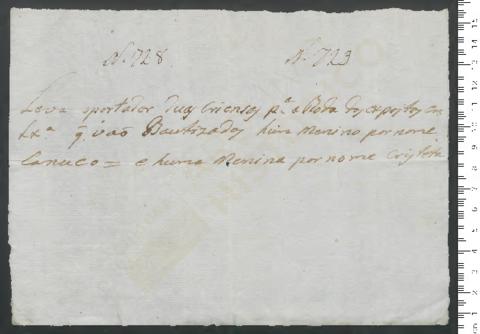 Nº 728 Nº 729
Leva oportador duas Criensas pª a Roda dos expostos em
Lxª q̃ vaõ Bautizados hum Menino por nome
Canuco = e huma Menina por nome